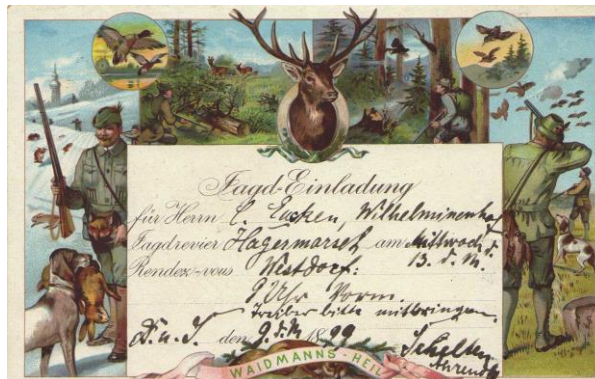 Jagd-Einladung
für Herrn C. Eucken, Wilhelminenhof
Jagdrevier Hagermarsch am Mittwoch d.
Rendez-vous Westdorf: 13. d. M.
9 Uhr Vorm.
Treiber bitte mitbringen.
D. u. J. den 9. d. M. 1899
Schelten
Ahrends
WAIDMANNS-HEIL